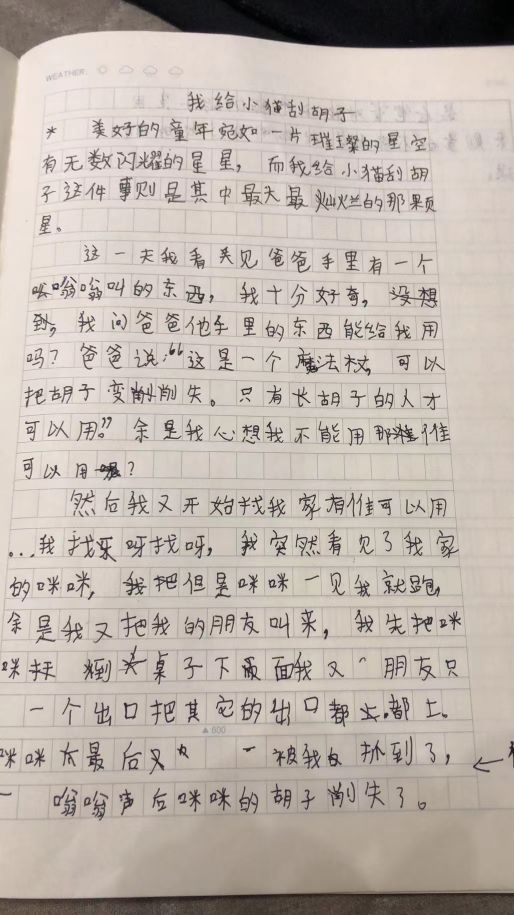 WEATHER:
我给小猫刮胡子
* 美好的童年宛如一片璀璨的星空
有无数闪耀的星星，而我给小猫刮胡
子这件事则是其中最大最灿烂的那颗
星。
这一天我看见爸爸手里有一个
嗡嗡叫的东西，我十分好奇，没想
到，我问爸爸他手里的东西能给我用
吗？爸爸说：“这是一个魔法杖，可以
把胡子变削失。只有长胡子的人才
可以用。”余是我心想我不能用那谁
可以用呢？
然后我又开始找我家有谁可以用
...我找呀找呀，我突然看见了我家
的咪咪，但是咪咪一见我就跑，
余是我又把我的朋友叫来，我先把咪
咪 到桌子下面我又 朋友只
一个出口把其它的出口都 都上。
▲600
咪咪 最后又 被我 抓到了，
嗡嗡声后咪咪的胡子削失了。